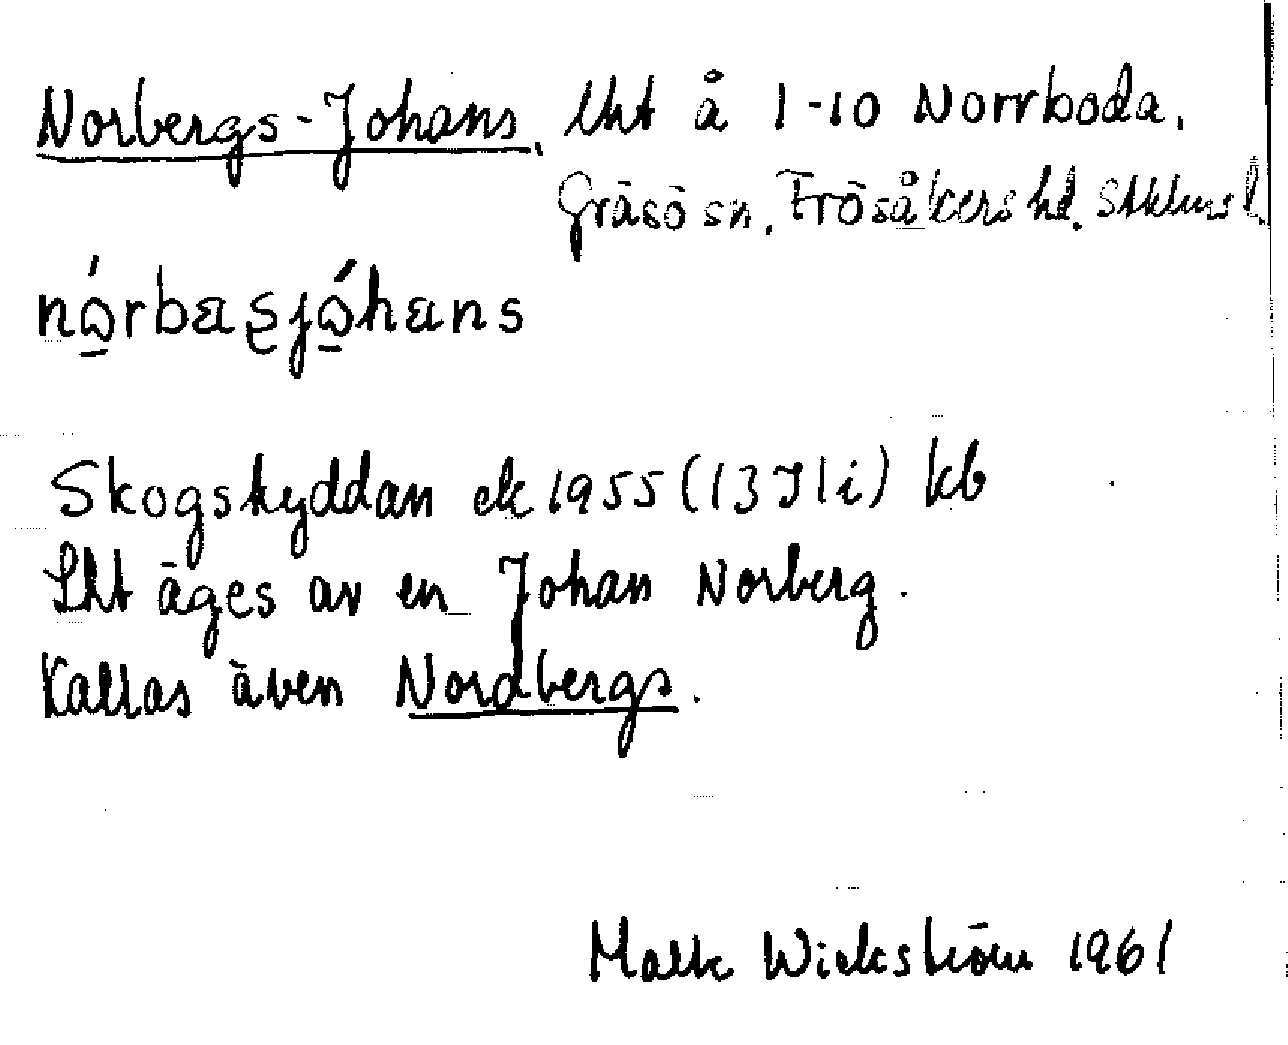 Norbergs-Johans, lht å 1-10 Norrboda.
Gräsö sn, Frösåkers hd. Sthlms l.
Skogskyddan ek 1955 (13I1i) kb
Lht äges av en Johan Norberg.
Kallas även Nordbergs.
Wickström 1961